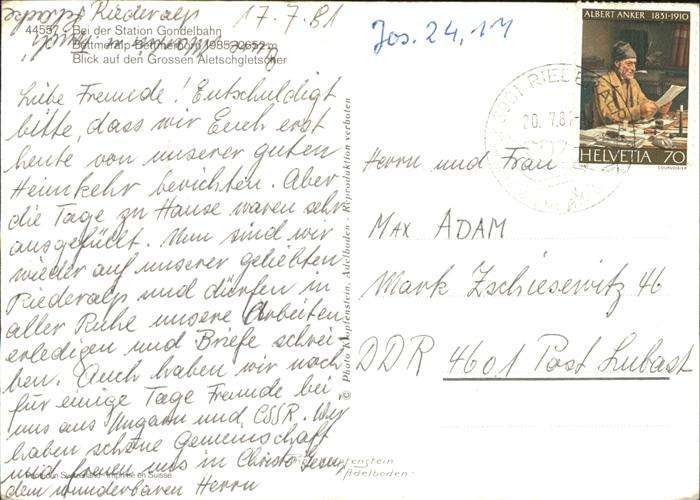 Riederalp 17.7.81
Jos. 24,14
44557 Bei der Station Gondelbahn
Bettmeralp-Bettmerhorn 1985-2652 m
Blick auf den Grossen Aletschgletscher
Liebe Freunde! Entschuldigt
bitte, dass wir Euch erst
heute von unserer guten
Heimkehr berichten. Aber
die Tage zu Hause waren sehr
ausgefüllt. Nun sind wir
wieder auf unserer geliebten
Riederalp und dürfen in
aller Ruhe unsere Arbeiten
erledigen und Briefe schrei-
ben. Auch haben wir noch
für einige Tage Freunde bei
uns aus Ungarn und CSSR. Wir
haben schöne Gemeinschaft
und freuen uns in Christo Jesu,
dem wunderbaren Herrn
Imprimé en Suisse
© Photo Klopfenstein, Adelboden - Reproduktion verboten
Klopfenstein
Adelboden
ALBERT ANKER 1831-1910
HELVETIA 70
20. 7.81
Herrn und Frau
MAX ADAM
Mark Zschiesewitz 46
DDR 4601 Post Lubast